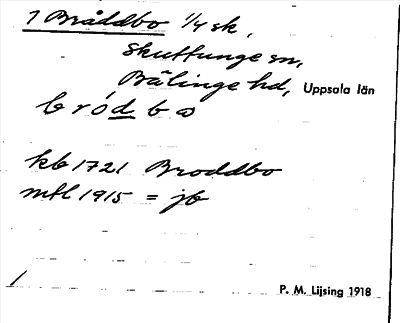 1 Bråddbo 1/4 sk,
Skuttunge sn,
Bälinge hd, Uppsala län
bródbo
kb 1721 Broddbo
mtl 1915 = jb
1
P. M. Lijsing 1918